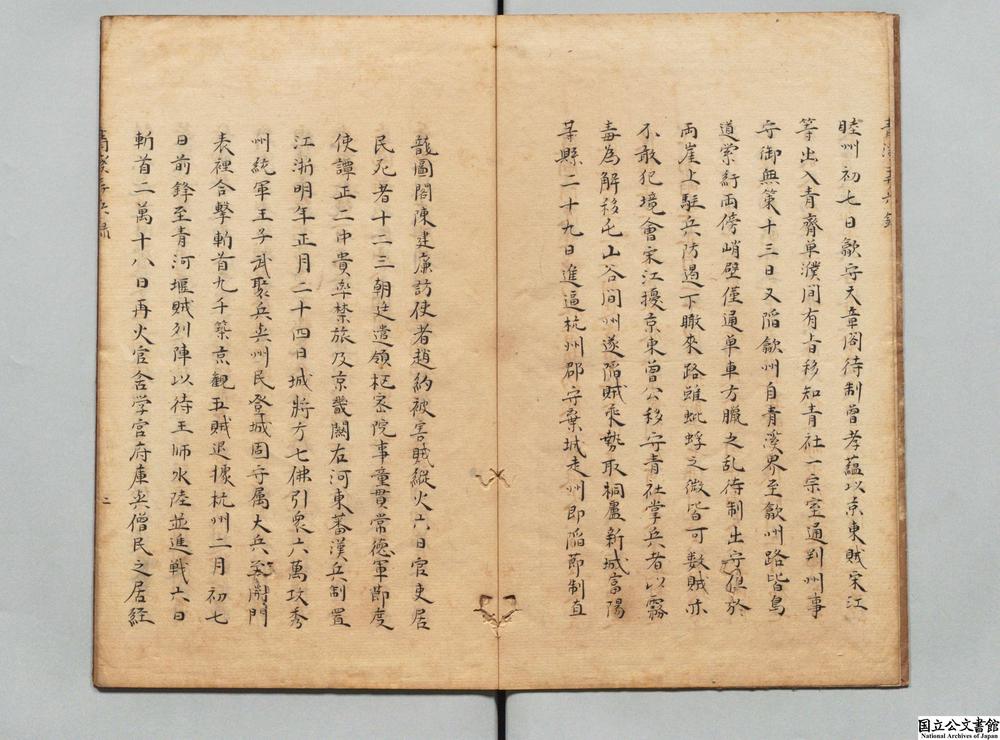 睦州初七日歙守天章阁待制曽孝蕴以京東賊宋江
等出入青齊单濮间有旨移知青社一宗室通判州事
守御無策十三日又陥歙州自青溪界至歙州路皆鸟
道萦纡両傍峭壁仅通单車方臘之乱待制出守但於
両崖上駐兵防遏下瞰來路雖蚍蜉之微皆可数賊亦
不敢犯境會宋江擾京東曽公移守青社掌兵者以霧
毒為解移屯山谷间州遂陥賊乘勢取桐廬新城富陽
等縣二十九日進逼杭州郡守棄城走州即陥節制直
龍圖閣陳建廉訪使者趙約被害賊縦火六日官吏居
民死者十二三朝廷遣領枢密院事童貫常德軍節度
使譚正二中貴率禁旅及京畿關右河東蕃漢兵制置
江浙明年正月二十四日城將方七佛引衆六萬攻秀
州統軍王子武聚兵与州民登城固守属大兵至開門
表裡合擊斬首九千築京観五賊退據杭州二月初七
日前鋒至青河堰賊列陣以待王师水陸並進戦六日
斬首二萬十八日再火官舎学宫府庫与僧民之居経
二
国立公文書館
National Archives of Japan